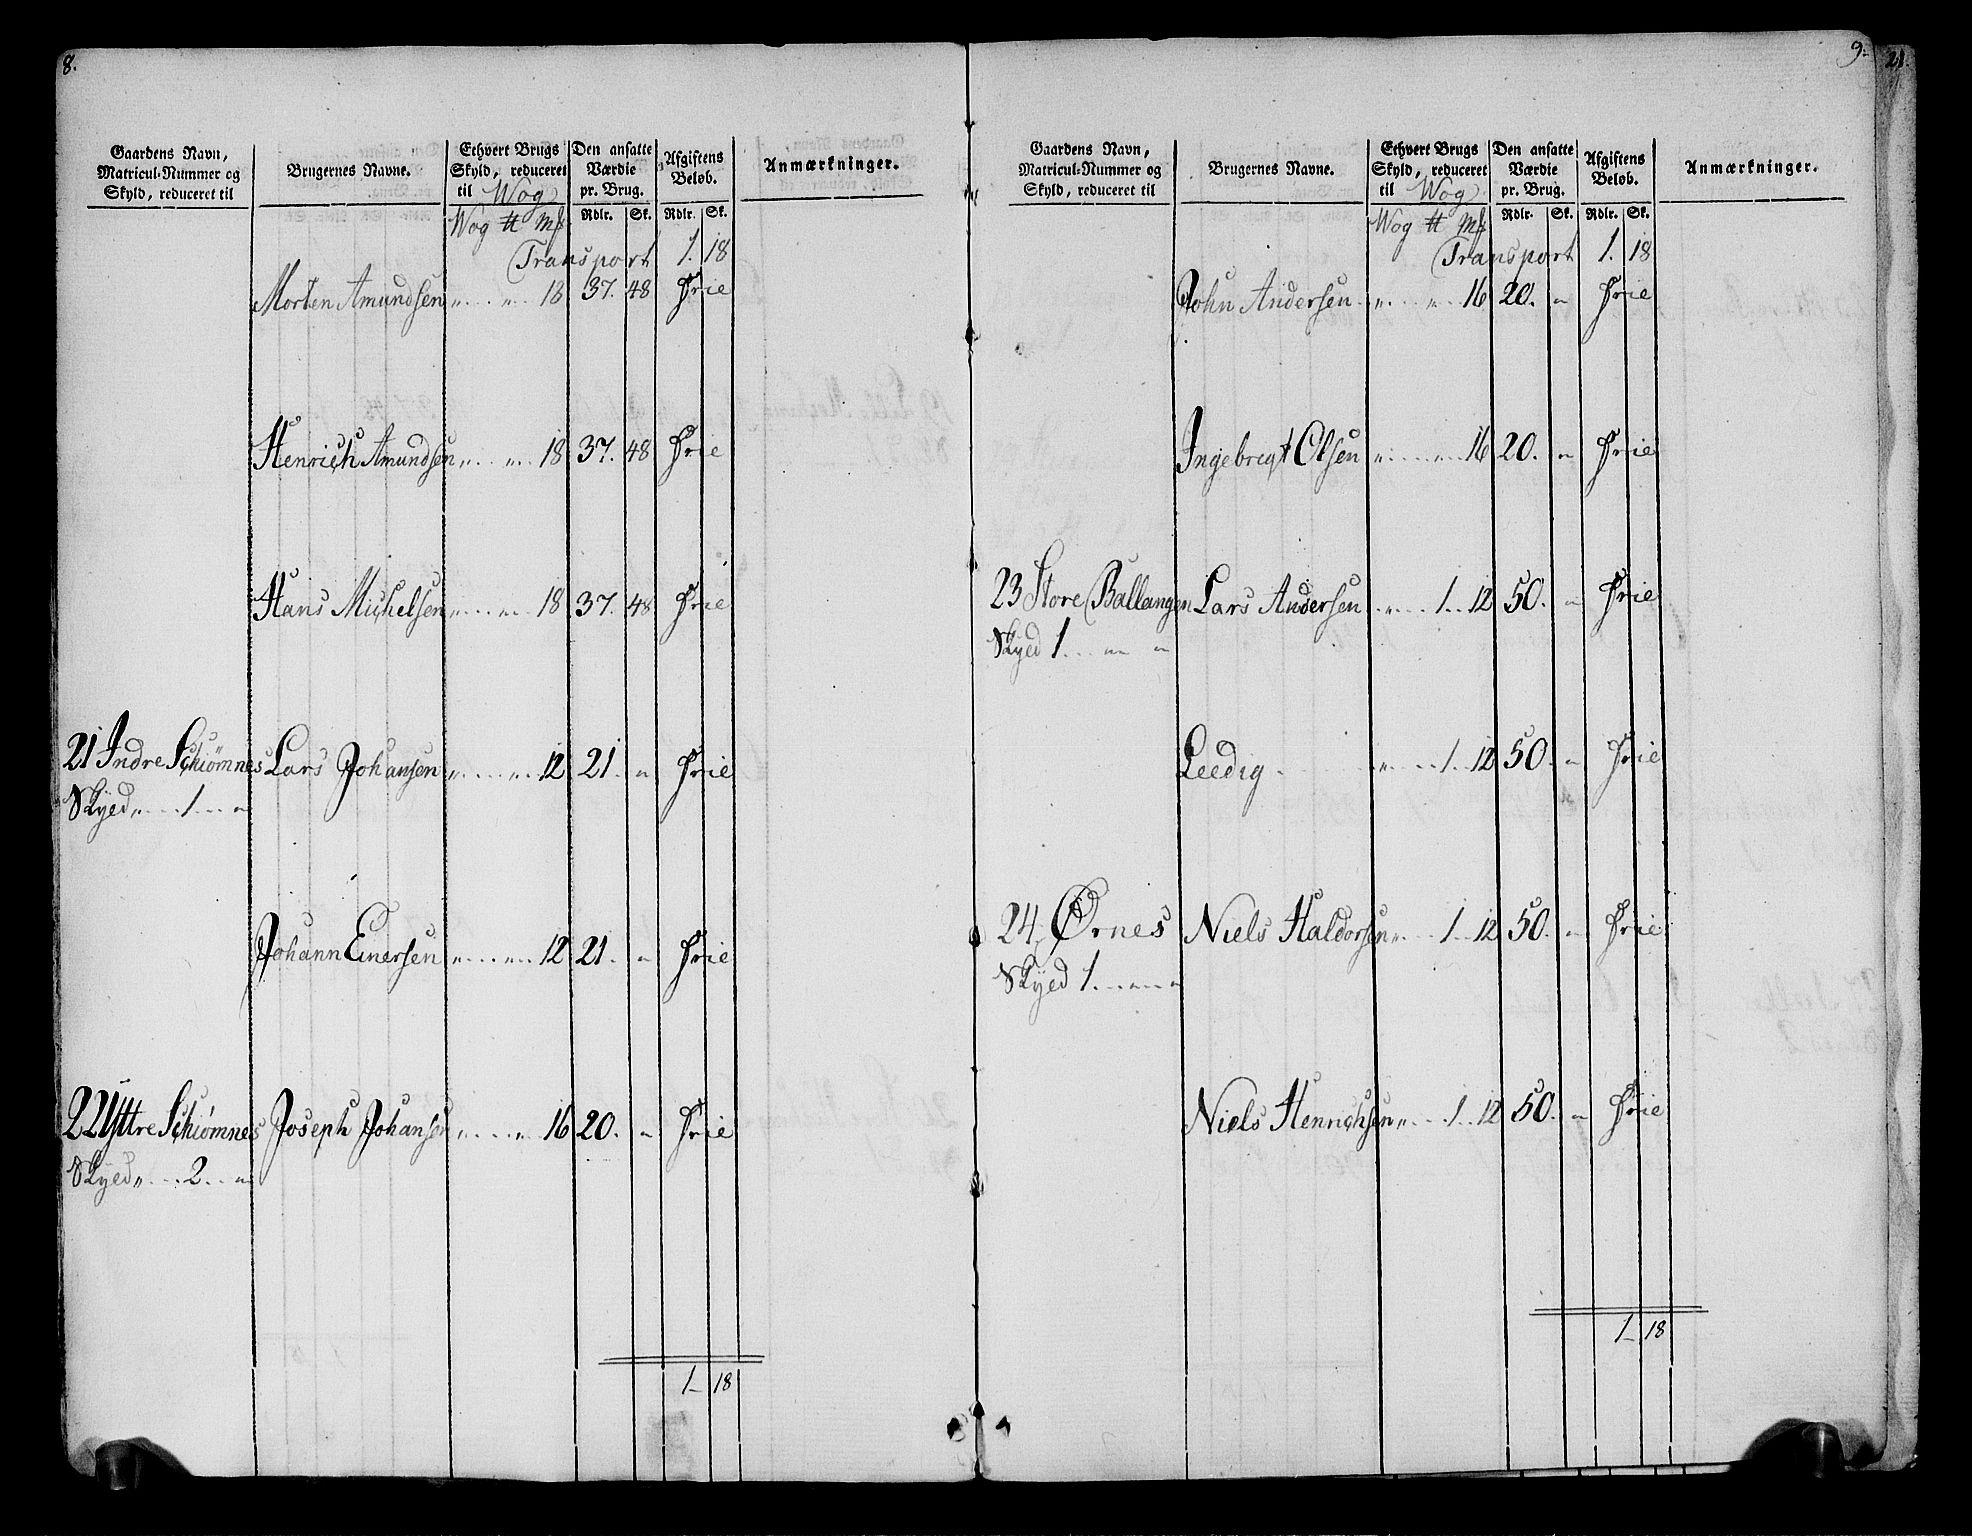 8.
Gaardens Navn, Matricul-Nummer og Skyld, reduceret til
Brugernes Navne.
Ethvert Brugs Skyld, reduceret til Wog
Den ansatte Værdie pr. Brug.
Afgiftens Beløb.
Anmærkninger.
Wog ℔ Mk Rdlr. Sk. Rdlr. Sk.
Transport 1. 18
Morten Amundsen „ „ 18 37. 48 Frie
Henrich Amundsen „ „ 18 37. 48 Frie
Hans Michelsen „ „ 18 37. 48 Frie
21 Indre Schiømnes Lars Johansen „ „ 12 21. „ Frie
Skyed „ 1 „
Johann Einersen „ „ 12 21. „ Frie
22 Yttre Schiømnes Joseph Johansen „ „ 16 20. „ Frie
Skyed „ 2 „
1 – 18
9. 21.
Gaardens Navn, Matricul-Nummer og Skyld, reduceret til
Brugernes Navne.
Ethvert Brugs Skyld, reduceret til Wog
Den ansatte Værdie pr. Brug.
Afgiftens Beløb.
Anmærkninger.
Wog ℔ Mk Rdlr. Sk. Rdlr. Sk.
Transport 1. 18
John Andersen „ „ 16 20. „ Frie
Ingebrigt Olsen „ „ 16 20. „ Frie
23 Store Ballangen Lars Andersen „ 1 12 50. „ Frie
Skyed 1 „ „
Leedig „ 1 12 50. „ Frie
24 Ørnes Niels Haldorsen „ 1 12 50. „ Frie
Skyed 1 „ „
Niels Henrichsen „ 1 12 50. „ Frie
1 – 18